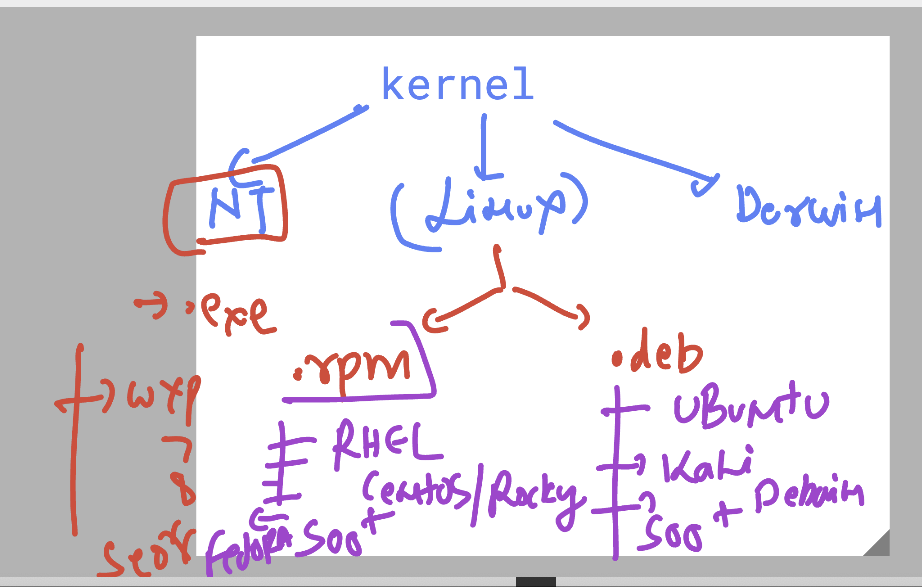 kernel
NT
(Linux)
Derwin
→ .exe
.rpm
.deb
→ WXP
7
8
RHEL
Centos/Rocky
Fedora 500+
UBuntu
Kali
500+ Debain